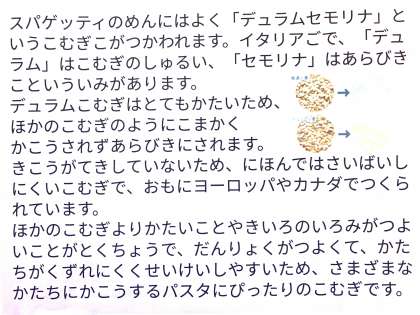 スパゲッティのめんにはよく「デュラムセモリナ」と
いうこむぎこがつかわれます。イタリアごで、「デュ
ラム」はこむぎのしゅるい、「セモリナ」はあらびき
こといういみがあります。
デュラムこむぎはとてもかたいため、
ほかのこむぎのようにこまかく
かこうされずあらびきにされます。
きこうがてきしていないため、にほんではさいばいし
にくいこむぎで、おもにヨーロッパやカナダでつくら
れています。
ほかのこむぎよりかたいことやきいろのいろみがつよ
いことがとくちょうで、だんりょくがつよくて、かた
ちがくずれにくくせいけいしやすいため、さまざまな
かたちにかこうするパスタにぴったりのこむぎです。